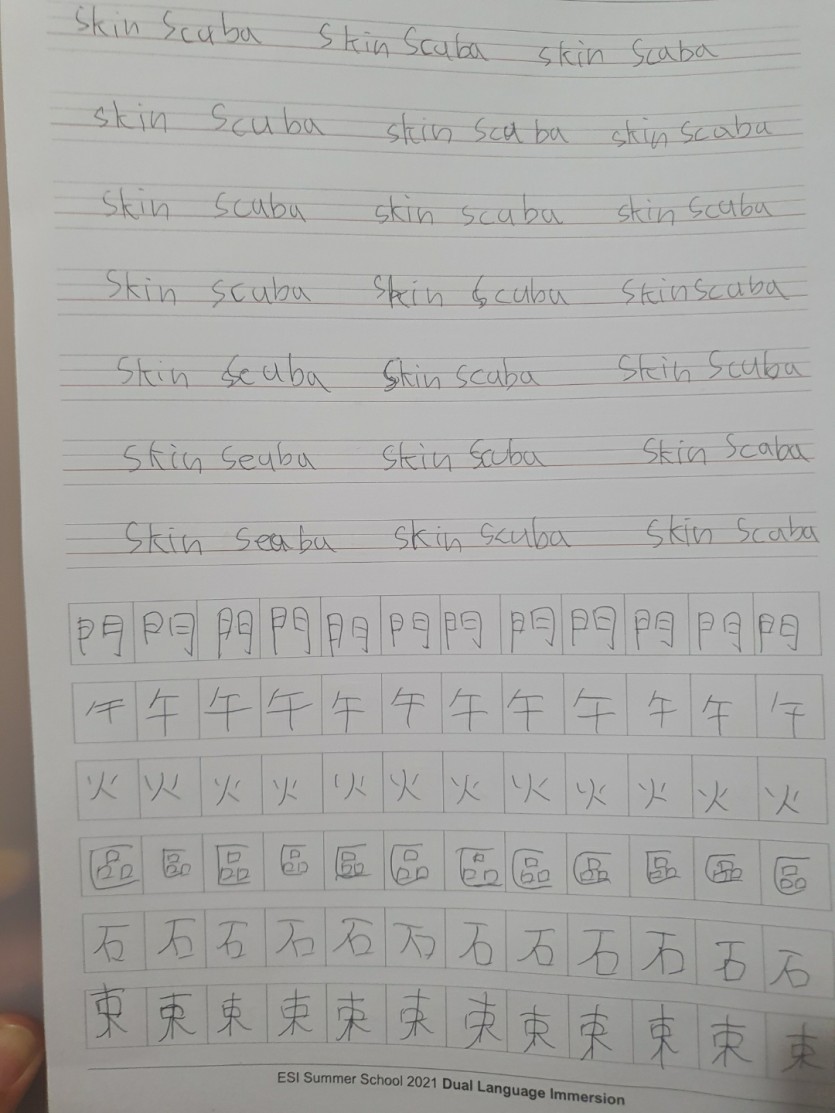 Skin Scuba Skin Scuba skin Scaba
skin Scuba skin scuba skin scaba
Skin scuba skin scuba skin scuba
Skin scuba Skin scuba Skinscaba
Skin scuba Skin scuba Skin Scuba
Skin seuba Skin Scuba Skin Scaba
Skin seaba skin scuba Skin Scaba
門 門 門 門 門 門 門 門 門 門 門 門
午 午 午 午 午 午 午 午 午 午 午 午
火 火 火 火 火 火 火 火 火 火 火 火
區 區 區 區 區 區 區 區 區 區 區 區
石 石 石 石 石 石 石 石 石 石 石 石
東 東 東 東 東 東 東 東 東 東 東 東
ESI Summer School 2021 Dual Language Immersion